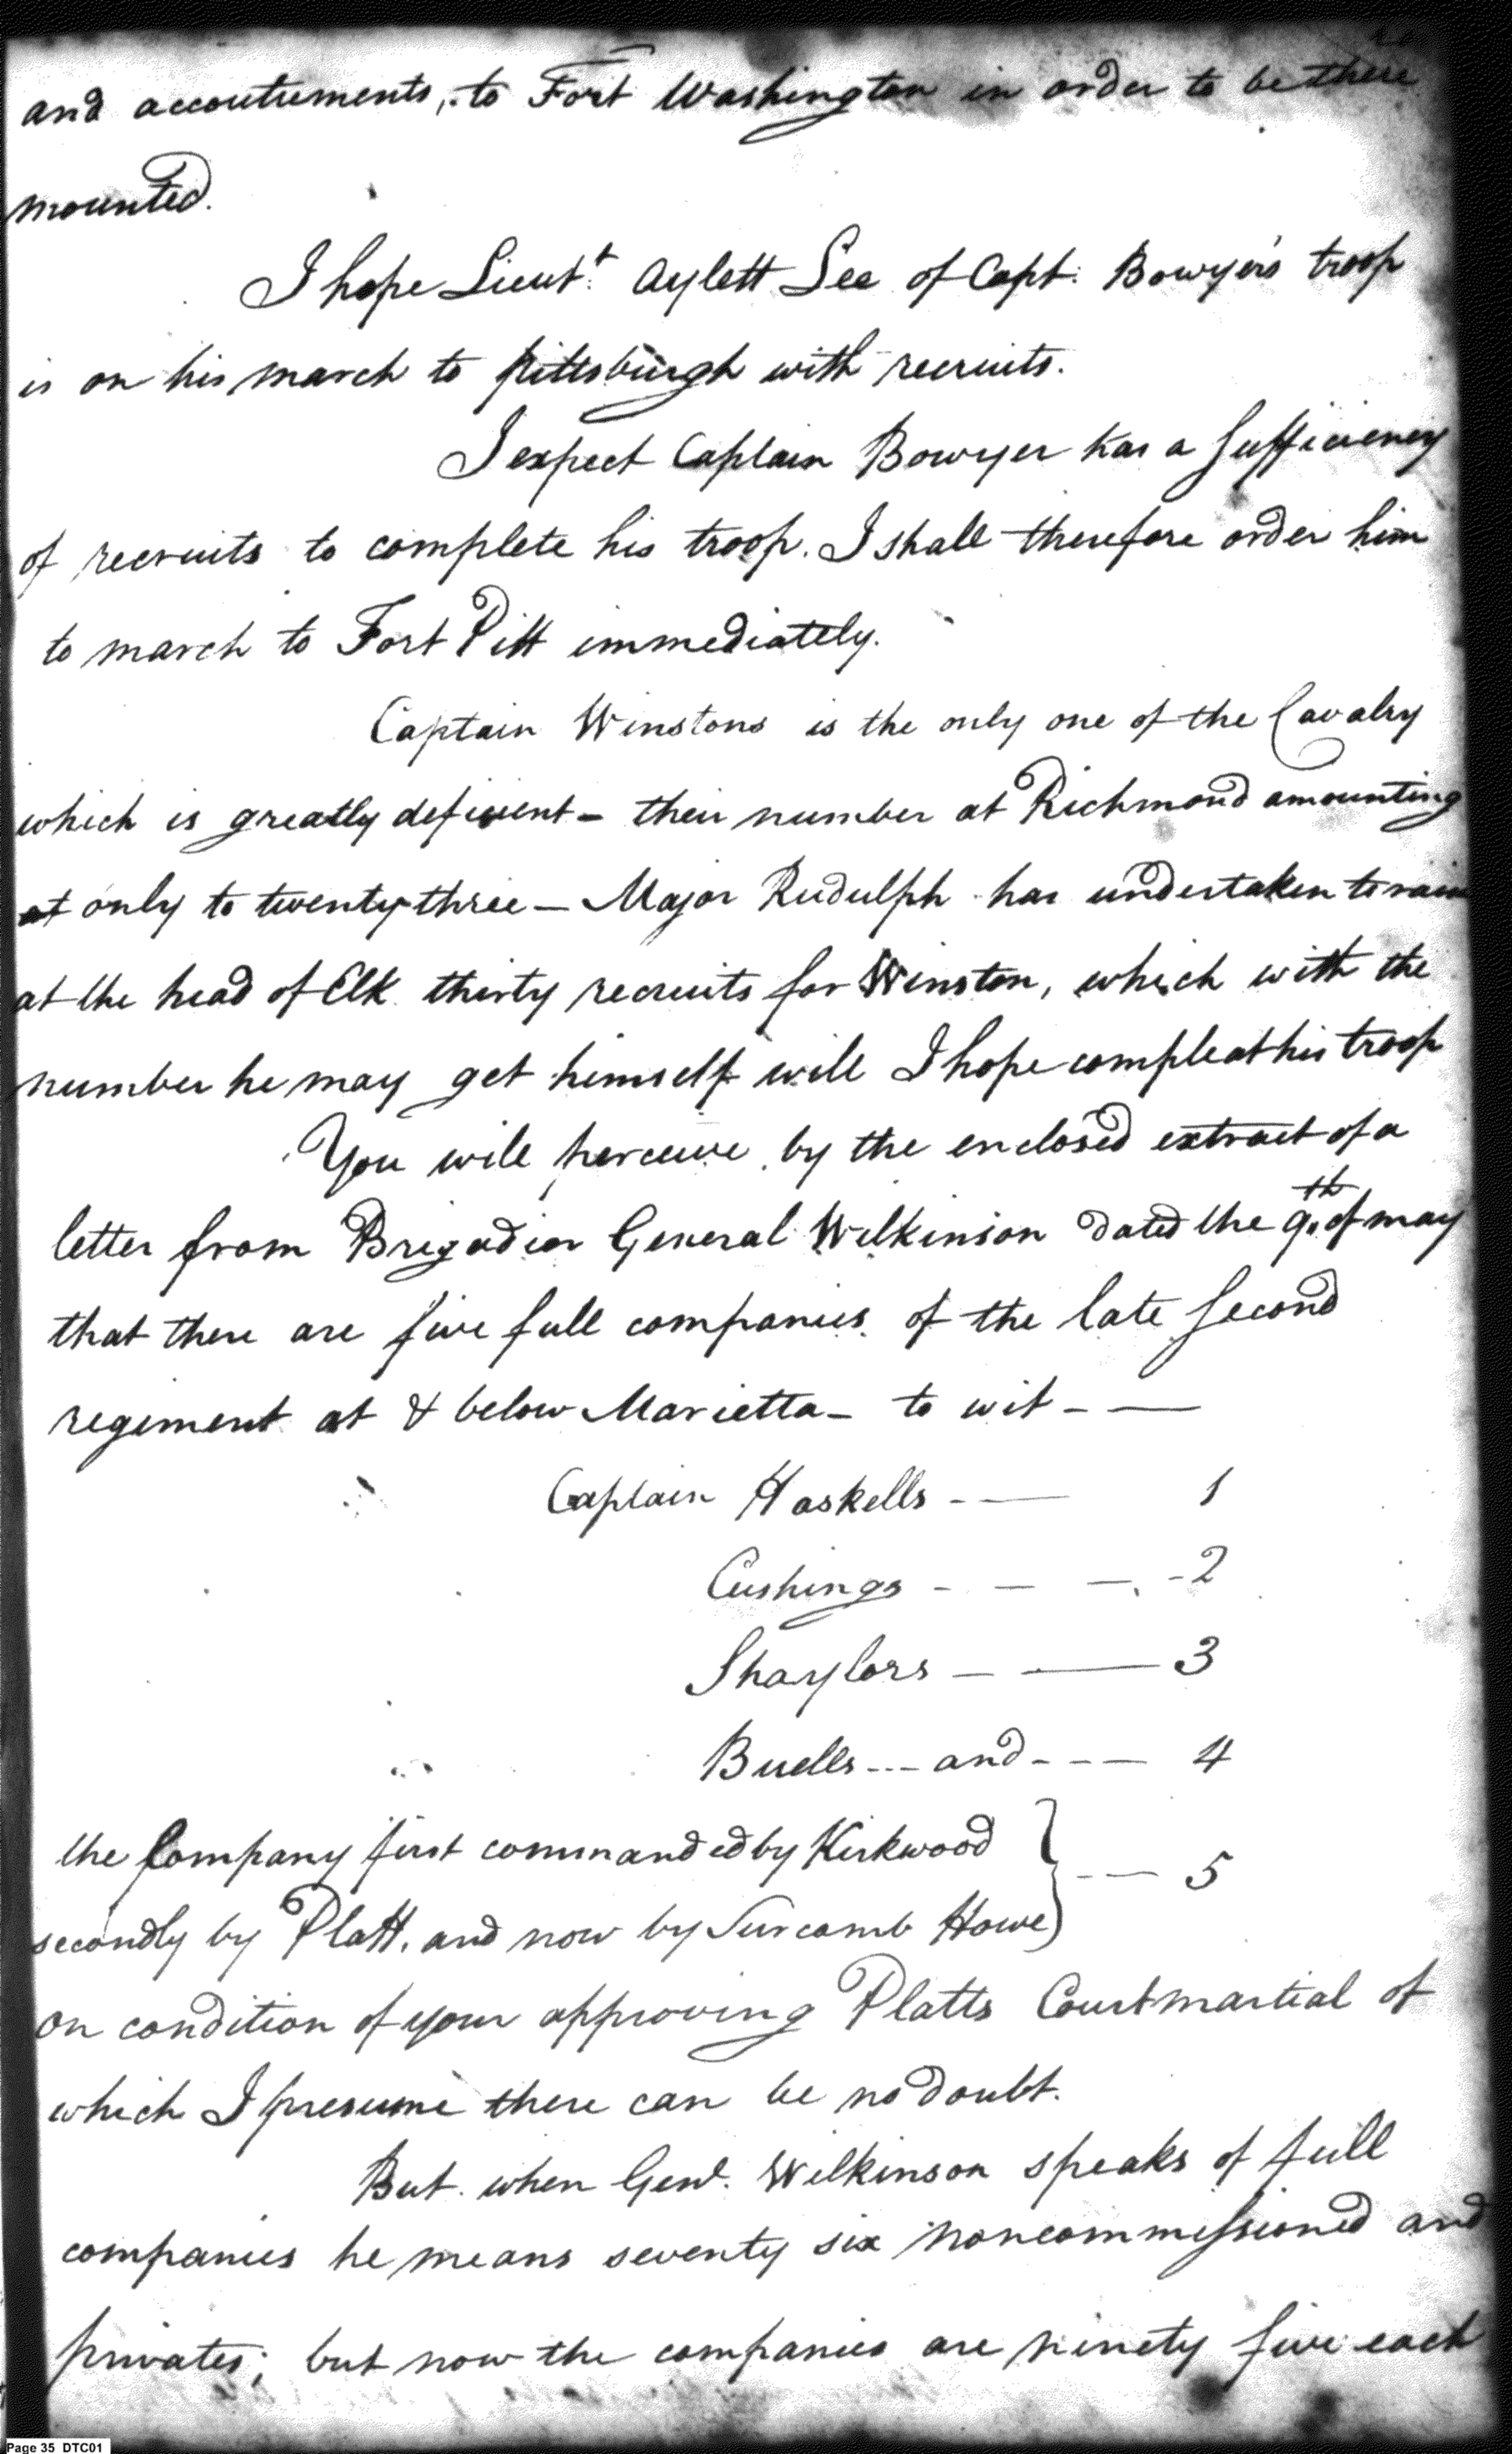 and accoutrements, to Fort Washington in order to be there
mounted.
I hope Lieut.t Aylett Lee of Capt. Bowyer's troop
is on his march to pittsburgh with recruits.
I expect Captain Bowyer has a sufficiency
of recruits to complete his troop. I shall therefore order him
to march to Fort Pitt immediately.
Captain Winstons is the only one of the Cavalry
which is greatly deficient - their number at Richmond amounting
at only to twenty three - Major Rudulph has undertaken to raise
at the head of Elk thirty recruits for Winston, which with the
number he may get himself will I hope compleat his troop
You will perceive by the enclosed extract of a
letter from Brigadier General Wilkinson dated the 9th of may
that there are five full companies of the late second
regiment at & below Marietta - to wit - —
Captain Haskells - — 1
Cushings - - — - 2
Shaylors - — 3
Buells --- and - - — 4
the Company first commanded by Kirkwood
secondly by Platt, and now by Howe } - — 5
on condition of your approving Platts Courtmartial of
which I presume there can be no doubt.
But when Genl. Wilkinson speaks of full
companies he means seventy six noncommissioned and
privates; but now the companies are ninety five each
Page 35 DTC01